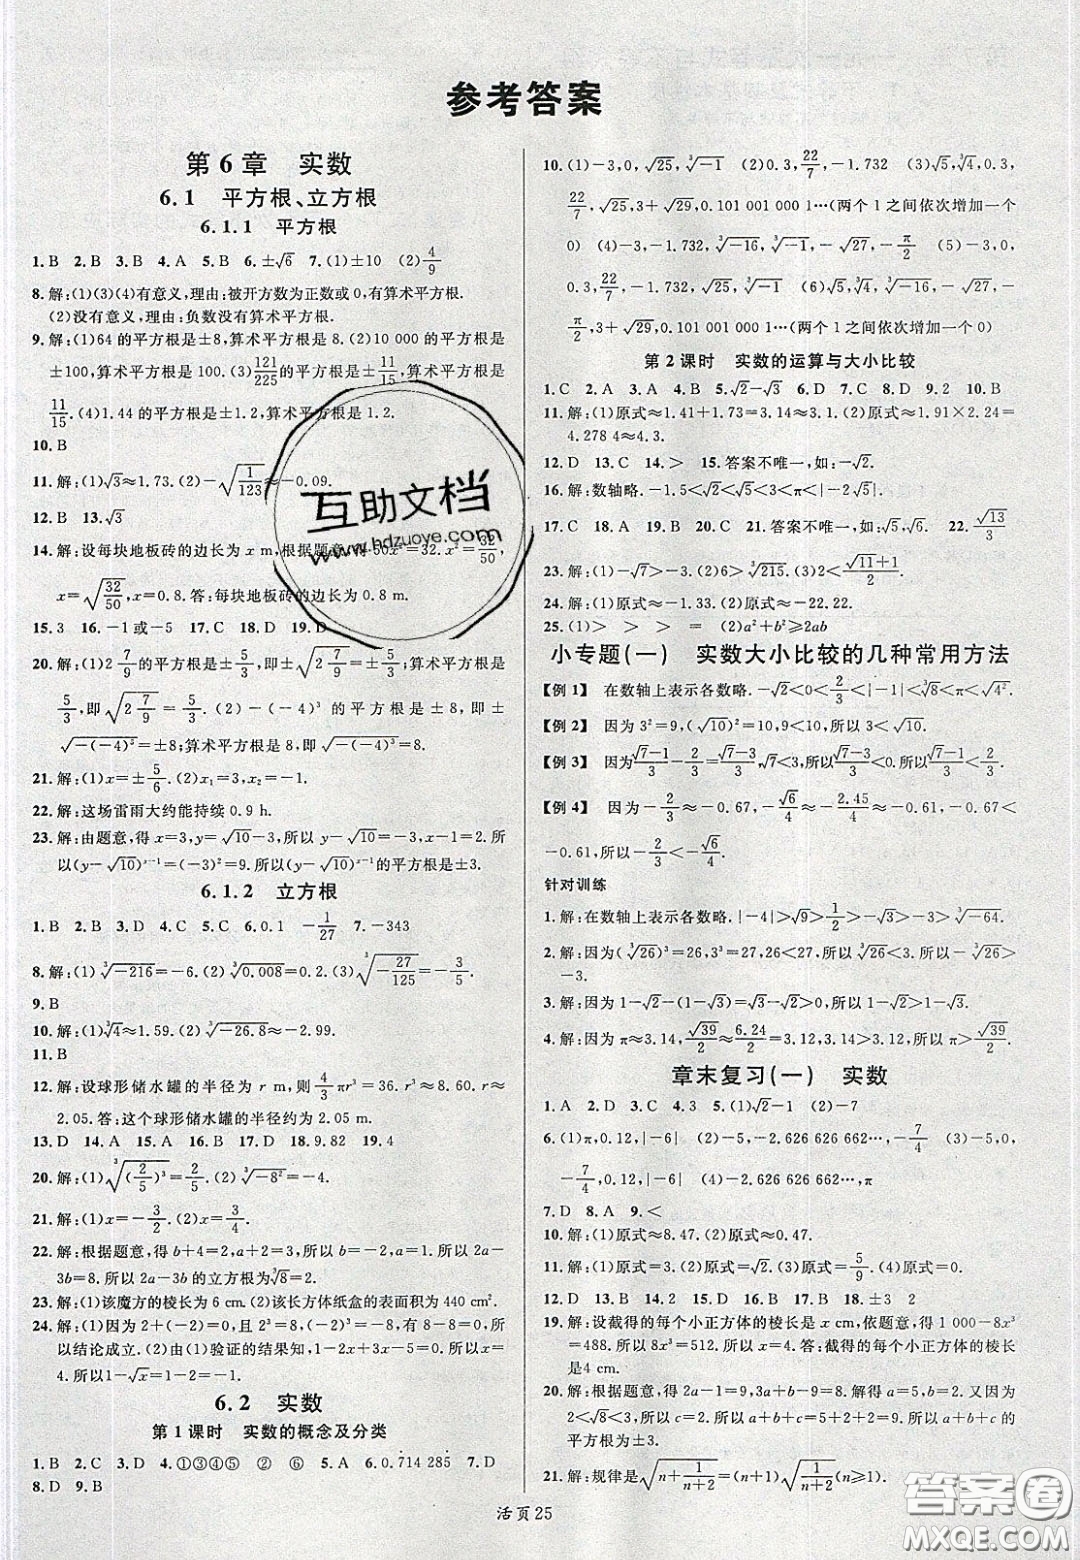 参考答案
第6章 实数
6.1 平方根、立方根
6.1.1 平方根
1.B 2.B 3.B 4.A 5.B 6.±√6 7.(1)±10 (2)4/9
8.解:(1)(3)(4)有意义,理由:被开方数为正数或0,有算术平方根.
(2)没有意义,理由:负数没有算术平方根.
9.解:(1)64的平方根是±8,算术平方根是8.(2)10 000的平方根是
±100,算术平方根是100.(3)121/225的平方根是±11/15,算术平方根是
11/15.(4)1.44的平方根是±1.2,算术平方根是1.2.
10.B
11.解:(1)√3≈1.73.(2)-√(1/123)≈-0.09.
12.B 13.√3
14.解:设每块地板砖的边长为 x m,根据题意,得50x²=32.x²=32/50,
x=√(32/50),x=0.8.答:每块地板砖的边长为0.8 m.
15.3 16.-1或-5 17.C 18.D 19.D
20.解:(1)2 7/9的平方根是±5/3,即±√(2 7/9)=±5/3;算术平方根是
5/3,即√(2 7/9)=5/3.(2)-(-4)³的平方根是±8,即±
√(-(-4)³)=±8;算术平方根是8,即√(-(-4)³)=8.
21.解:(1)x=±5/6.(2)x₁=3,x₂=-1.
22.解:这场雷雨大约能持续0.9 h.
23.解:由题意,得x=3,y=√10-3,所以y-√10=-3,x-1=2.所
以(y-√10)ˣ⁻¹=(-3)²=9.所以(y-√10)ˣ⁻¹的平方根是±3.
6.1.2 立方根
1.B 2.B 3.D 4.C 5.C 6.0.1 -1/27 7.-343
8.解:(1)∛-216=-6.(2)∛0.008=0.2.(3)∛(-27/125)=-3/5.
9.B
10.解:(1)∛4≈1.59.(2)∛-26.8≈-2.99.
11.B
12.解:设球形储水罐的半径为 r m,则4/3πr³=36.r³≈8.60.r≈
2.05.答:这个球形储水罐的半径约为2.05 m.
13.D 14.A 15.A 16.B 17.D 18.9.82 19.4
20.解:(1)∛((2/5)³)=2/5.(2)∛-8²=-4.
21.解:(1)x=-3/2.(2)x=5.
22.解:根据题意,得b+4=2,a+2=3.所以b=-2,a=1.所以2a-
3b=8.所以2a-3b的立方根是∛8=2.
23.解:(1)该魔方的棱长为6 cm.(2)该长方体纸盒的表面积为440 cm².
24.解:(1)因为2+(-2)=0,而且2³=8,(-2)³=-8,有8-8=0,所
以结论成立.(2)由(1)验证的结果知,1-2x+3x-5=0.所以x=
4.所以1-√x=1-2=-1.
6.2 实数
第1课时 实数的概念及分类
1.B 2.C 3.D 4.①③④⑤ ② ⑥ 5.A 6.0.714 285 7.D
8.D 9.B
10.(1)-3,0,√25,∛-1 (2)0.3,22/7,-1.732 (3)√5,∛4,0.3,
22/7,√25,3+√29,0.101 001 000 1…(两个1之间依次增加一个
0) (4)-3,-1.732,∛-16,∛-1,-√27,-π/2 (5)-3,0,0.3,
22/7,-1.732,√25,∛-1
-π/2,3+√29,0.101 001 000 1…(两个1之间依次增加一个0)
第2课时 实数的运算与大小比较
1.C 2.A 3.A 4.B 5.√2-√3 6.B 7.B 8.D 9.2 10.B
11.解:(1)原式≈1.41+1.73=3.14≈3.1.(2)原式≈1.91×2.24=
4.278 4≈4.3.
12.D 13.C 14.> 15.答案不唯一,如:-√2.
17.C 18.A 19.B 20.C 21.答案不唯一,如:√7 22.√13/3
23.解:(1)-√7>-3.(2)6>∛215.(3)2<(√11+1)/2.
24.解:(1)原式≈-0.10.(2)原式≈-22.22.
25.(1)> > > = (2)a²+b²≥2ab
小专题(一) 实数大小比较的几种常用方法
【例1】 在数轴上表示各数略.-√2<0<2/3<|-1|<∛8<π<√4².
【例2】 因为3²=9,(√10)²=10,9<10,所以3<√10.
【例3】 因为(√7-1)/3-2/3=(√7-3)/3,√7<3,所以(√7-3)/3<0.所以(√7-1)/3<2/3.
【例4】 因为-2/3≈-0.67,-√6/4≈-2.45/4≈-0.61,-0.67<
-0.61,所以-2/3<-√6/4.
针对训练
1.解:在数轴上表示各数略.|-4|>√9>1/2>0>-√3>∛-64.
2.解:因为(∛26)³=26,3³=27,26<27,所以∛26<3.所以-∛26>
-3.
3.解:因为1-√2-(1-√3)=√3-√2>0,所以1-√2>1-√3.
4.解:因为π≈3.14,√39/2≈6.24/2=3.12,3.14>3.12,所以π>√39/2.
章末复习(一) 实数
1.A 2.D 3.C 4.3 5.(1)√2-1 (2)-7
6.(1)π,0.12,|-6| (2)-5,-2.626 626 662…,-7/4 (3)-5,0,
-7/4,0.12,|-6| (4)-2.626 626 662…,π
7.D 8.A 9.<
10.解:(1)原式≈8.47.(2)原式≈0.47.
11.解:(1)原式=3.(2)原式=3.(3)原式=5/9.(4)原式=0.
12.D 13.B 14.2 15.D 16.D 17.B 18.±3 2
19.解:设截得的每个小正方体的棱长是 x cm,依题意,得1 000-8x³
=488.所以8x³=512.所以x=4.答:截得的每个小正方体的棱长
是4 cm.
20.解:根据题意,得2a-1=9,3a+b-9=8.解得a=5,b=2.因为
2<√8<3,所以c=2.所以a+b+c=5+2+2=9.所以a+b+c的
平方根为±3.
活页25
互助文档
www.hdzuoye.com
答案圈
MXQE.COM